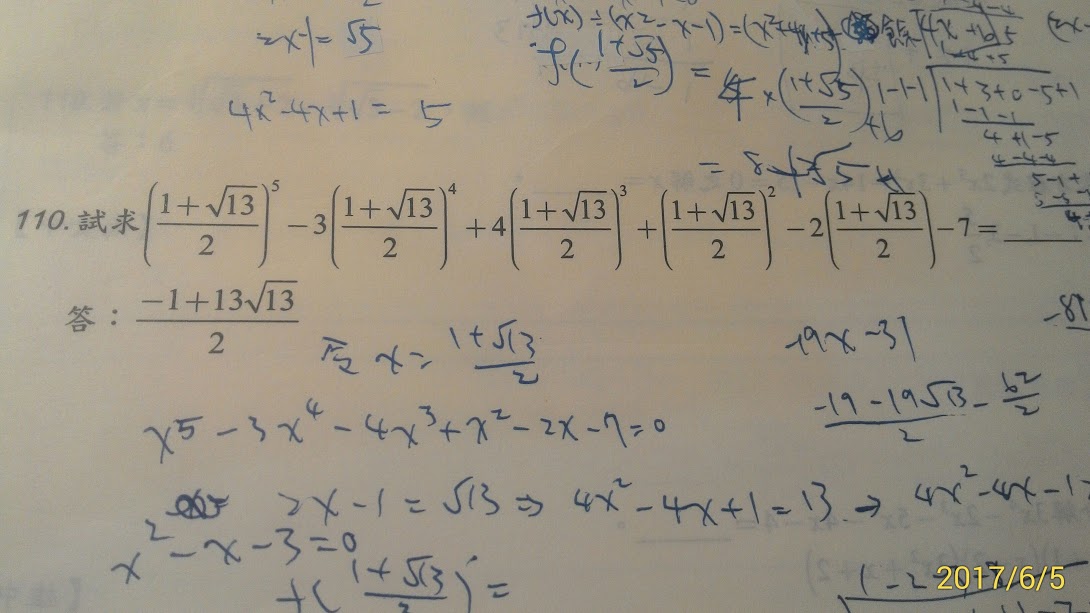 2x-1=√5
f(x)÷(x²-x-1)=(x²+4x+5)
f(1+√5/2) = 4×(1+√5/2)+6
1-1-1 1+3+0-5+1
1-1-1
4+1-5
4-4-4
4x²-4x+1=5
= 8+2√5
110. 試求((1+√13)/2)⁵-3((1+√13)/2)⁴+4((1+√13)/2)³+((1+√13)/2)²-2((1+√13)/2)-7=____
答：(-1+13√13)/2
x=(1+√13)/2
-19x-31
(-19-19√13)/2-62/2
x⁵-3x⁴-4x³+x²-2x-7=0
2x-1=√13⇒4x²-4x+1=13→4x²-4x-1
x²-x-3=0
2017/6/5